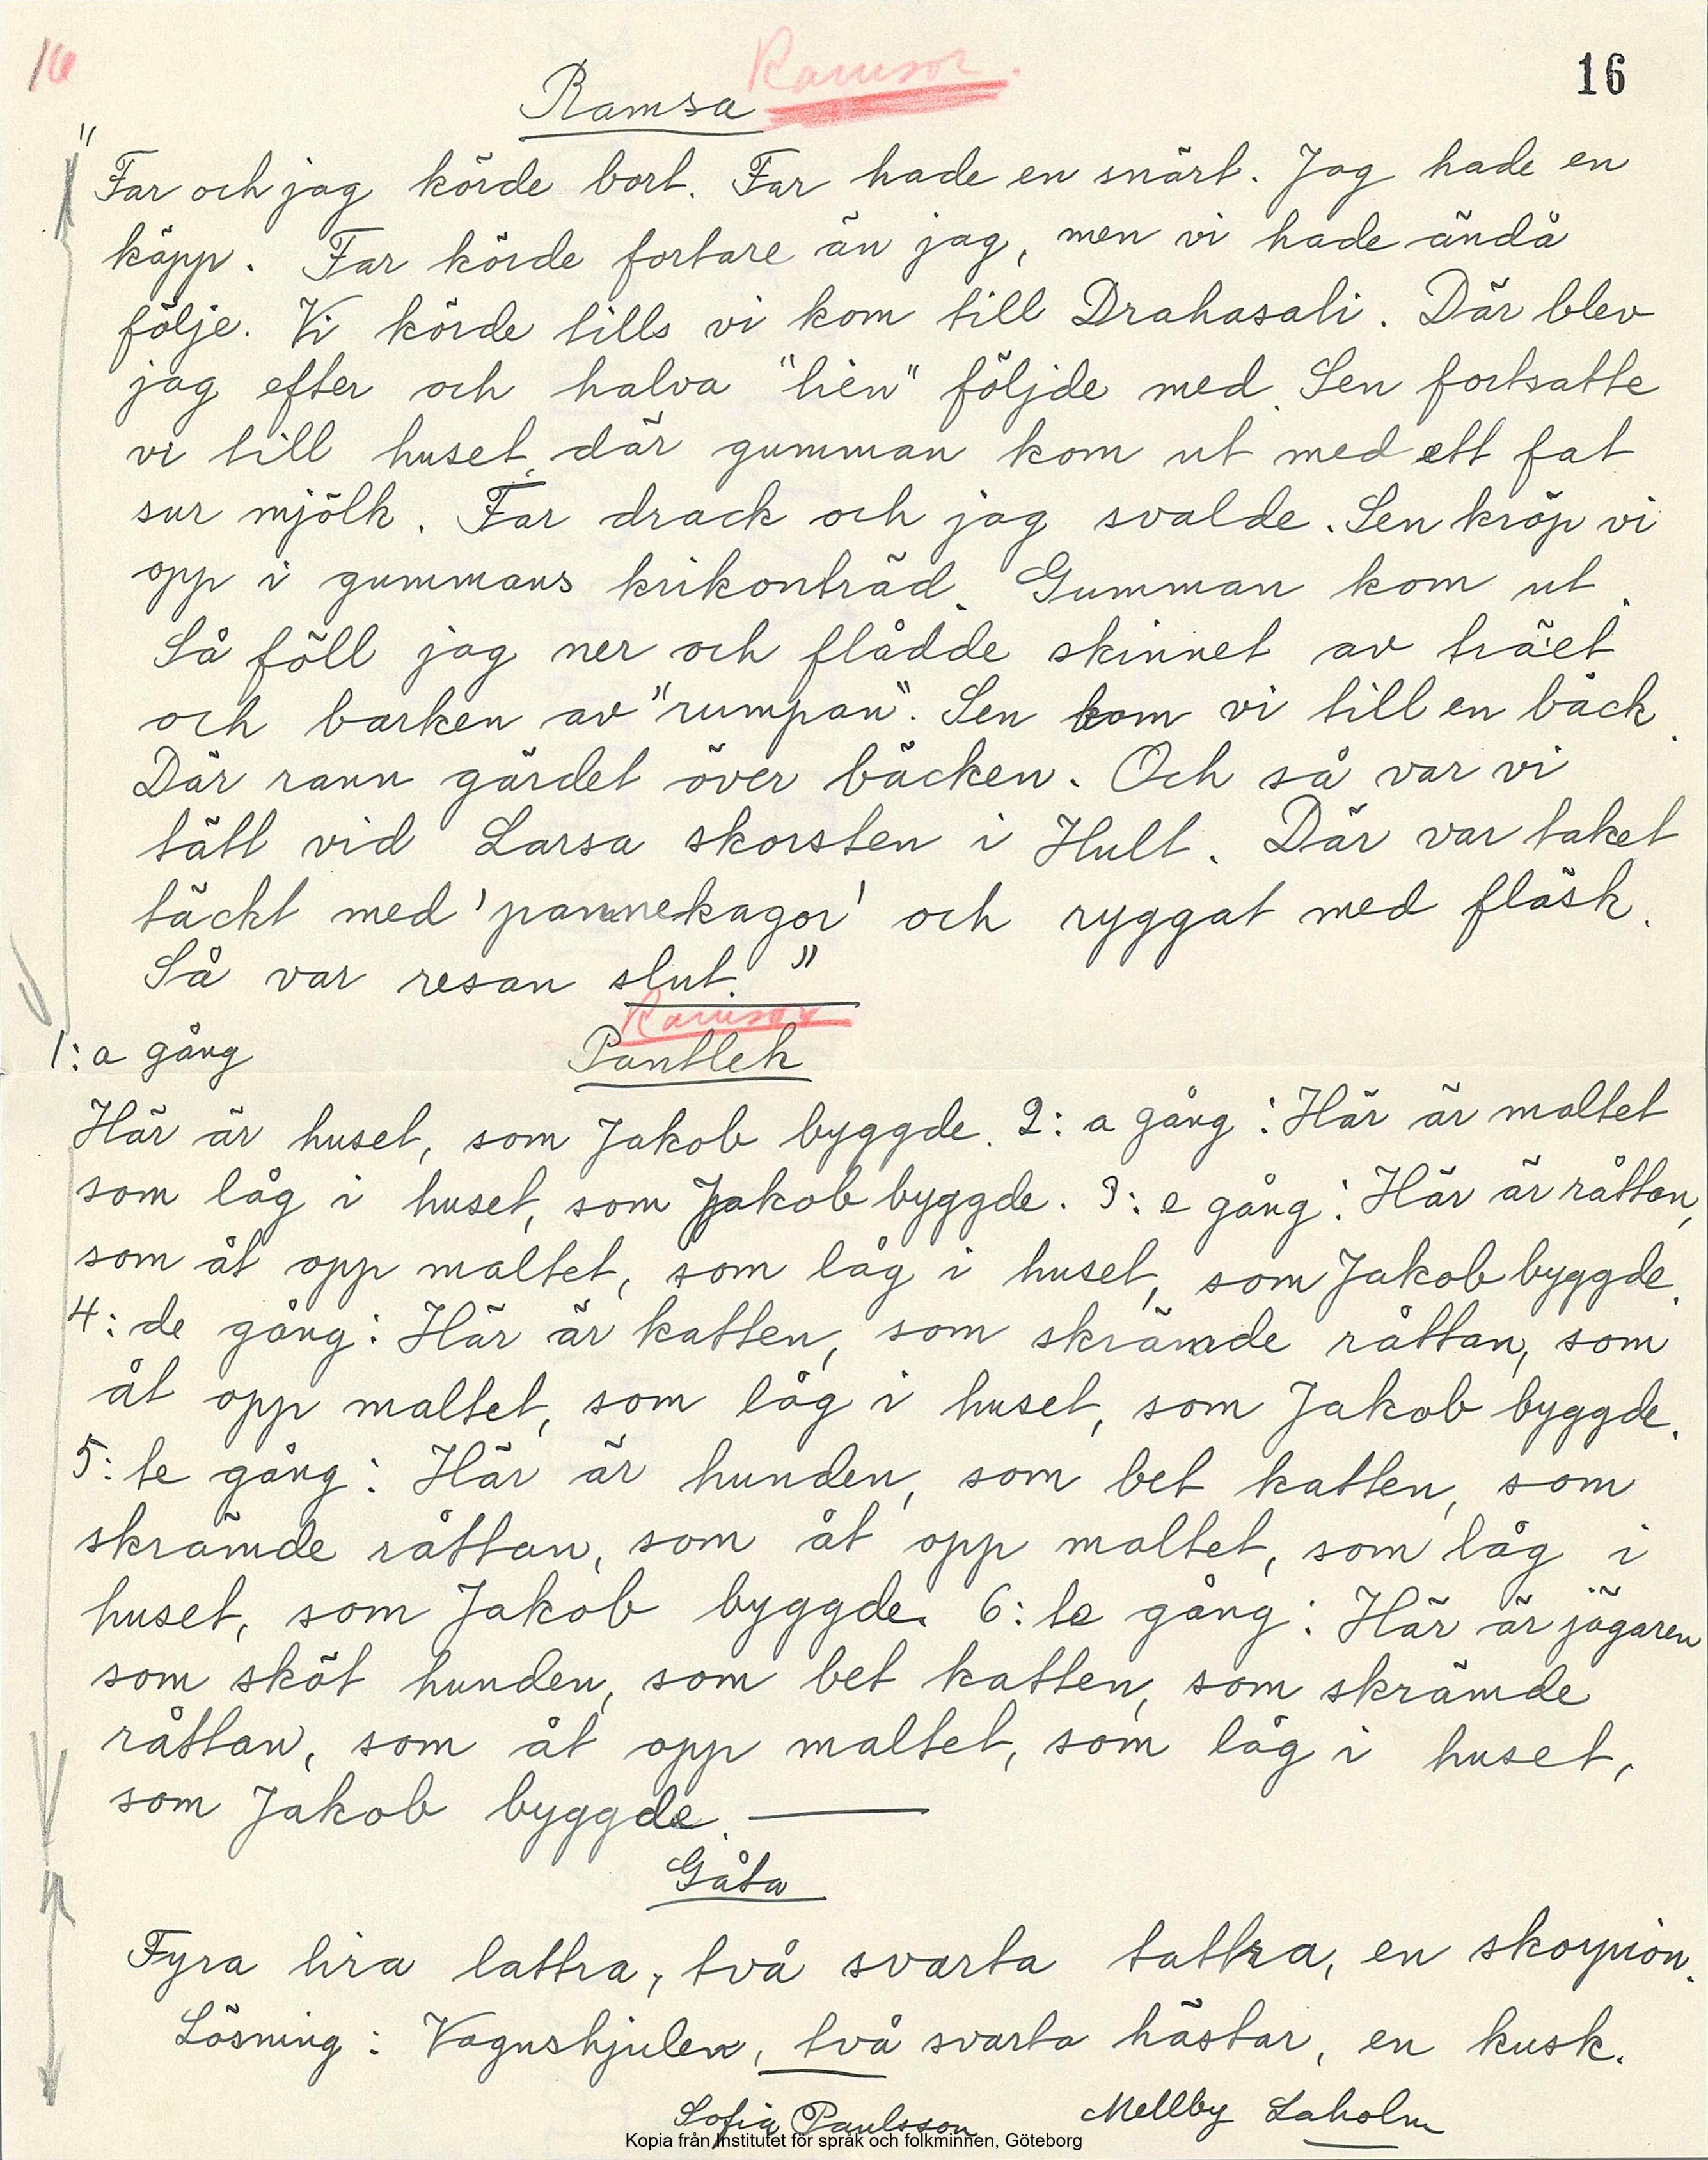 16 Ramsor. 16
Ramsa
"Far och jag körde bort. Far hade en snärt. Jag hade en
käpp. Far körde fortare än jag, men vi hade ändå
följe. Vi körde tills vi kom till Drahasali. Där blev
jag efter och halva "lien" följde med. Sen fortsatte
vi till huset, där gumman kom ut med ett fat
sur mjölk. Far drack och jag svalde. Sen kröp vi
opp i gummans krikonträd. Gumman kom ut.
Så föll jag ner och flådde skinnet av träet
och barken av "rumpan". Sen kom vi till en bäck.
Där rann gärdet över bäcken. Och så var vi
tätt vid Larsa skorsten i Hult. Där var taket
täckt med 'pannekagor' och ryggat med fläsk.
Så var resan slut."
Ramsor
1:a gång Pantlek
Här är huset, som Jakob byggde. 2:a gång: Här är maltet
som låg i huset, som Jakob byggde. 3:e gång: Här är råttan,
som åt opp maltet, som låg i huset, som Jakob byggde.
4:de gång: Här är katten, som skrämde råttan, som
åt opp maltet, som låg i huset, som Jakob byggde.
5:te gång: Här är hunden, som bet katten, som
skrämde råttan, som åt opp maltet, som låg i
huset, som Jakob byggde. 6:te gång: Här är jägaren
som sköt hunden, som bet katten, som skrämde
råttan, som åt opp maltet, som låg i huset,
som Jakob byggde.
Gåta
Fyra lira lattra, två svarta tattra, en skorpion.
Lösning: Vagnshjulen, två svarta hästar, en kusk.
Sofia Paulsson Mellby Laholm
Kopia från Institutet för språk och folkminnen, Göteborg